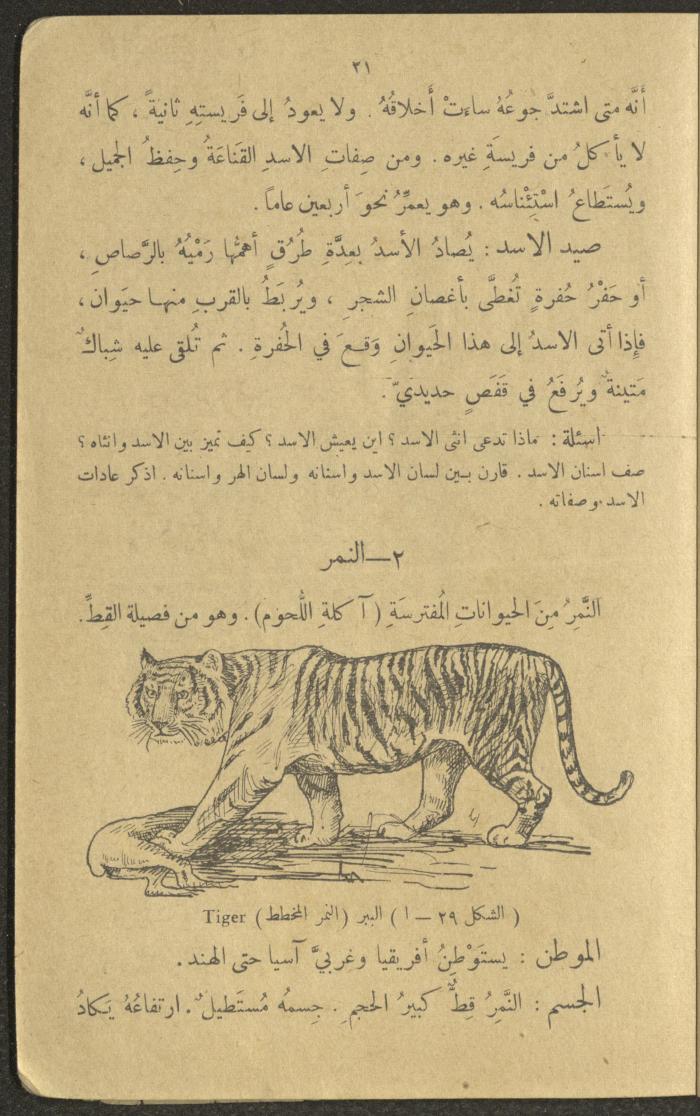 ٣١
أَنَّه متى اشتدَّ جوعُهُ ساءتْ أَخلاقُهُ . ولا يعودُ إلى فَريستِهِ ثانيةً ، كما أنَّه
لا يأكلُ من فريسةِ غيره . ومن صِفاتِ الاسدِ القَناعَةُ وحِفظُ الجميل ،
ويُستَطاعُ اسْتِئْناسُه . وهو يعمِّرُ نحوَ أربعين عاماً .
صيد الاسد : يُصادُ الأسدُ بعِدَّةِ طُرُقٍ أهمُّها رَمْيُهُ بالرَّصاصِ ،
أو حَفْرُ حُفرةٍ تُغطَّى بأغصانِ الشجرِ ، ويُربَطُ بالقربِ منها حيَوان ،
فإِذا أتى الاسدُ إلى هذا الحَيوانِ وَقعَ في الحُفرةِ . ثم تُلقى عليه شِباكٌ
مَتينةٌ ويُرفَعُ في قَفَصٍ حديديّ .
اسئلة : ماذا تدعى انثى الاسد ؟ اين يعيش الاسد ؟ كيف تميز بين الاسد وانثاه ؟
صف اسنان الاسد . قارن بين لسان الاسد واسنانه ولسان الهر واسنانه . اذكر عادات
الاسد وصفاته .
٢ — النمر
النَّمِرُ مِنَ الحيواناتِ المُفترسَةِ ( آكلةِ اللُّحوم ) . وهو من فصيلة القطِّ .
( الشكل ٢٩ — ١ ) الببر ( النمر المخطط ) Tiger
الموطن : يستَوْطِنُ أفريقيا وغربيَّ آسيا حتى الهند .
الجسم : النَّمِرُ قِطٌّ كبيرُ الحجمِ . جِسمُه مُستَطيلٌ . ارتفاعُهُ يَكادُ